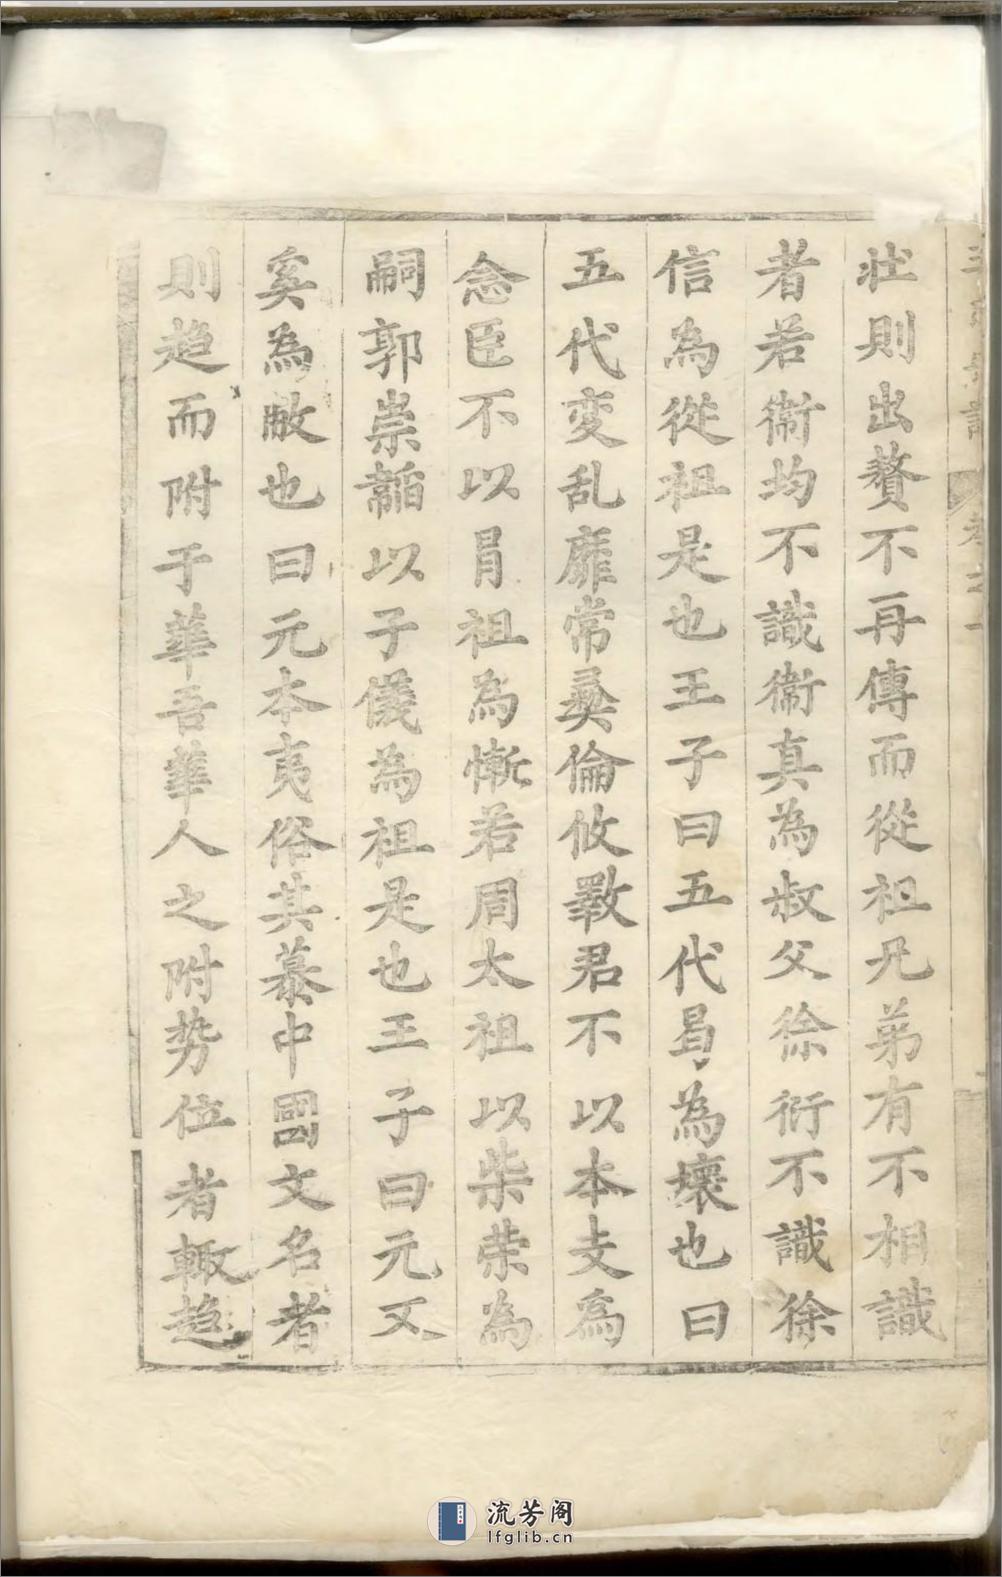 壯則出贅不再傳而從祖兄弟有不相識
者若衛均不識衛真為叔父徐衍不識徐
信為從祖是也王子曰五代曷為壞也曰
五代变乱靡常彝倫攸斁君不以本支為
念臣不以冐祖為慚若周太祖以柴荣為
嗣郭崇韜以子儀為祖是也王子曰元又
奚為敝也曰元本夷俗其慕中國文名者
則趋而附于華吾華人之附势位者輙趋
卷之一
流芳阁
lfglib.cn